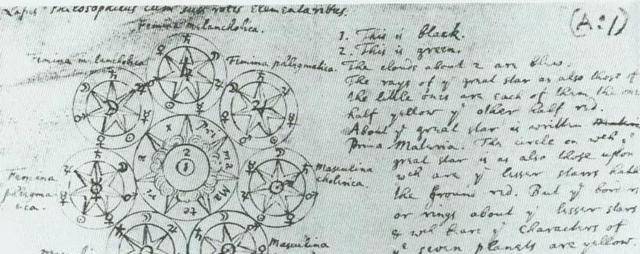 Lapis Philosophicus cum suis rotis Elementaribus.
Femina melancholica.
(A:1)
Femina melancholica.
Femina phlegmatica.
Femina
phlegma
tica.
Masculina
cholerica.
Masculina
1. This is black.
2. This is green.
The clouds about 2 are blew.
The rays of yᵉ great star as also those of
the little ones are each of them the one
half yellow yᵉ other half red.
About yᵉ great star is written
Prima Materia. The circle on wᶜʰ yᵉ
great star is as also those upon
wᶜʰ are yᵉ lesser starrs hath
the ground red. But yᵉ borders
or rings about yᵉ lesser stars
& wᶜʰ bear yᵉ characters of
yᵉ seven planets are yellow.
1
2